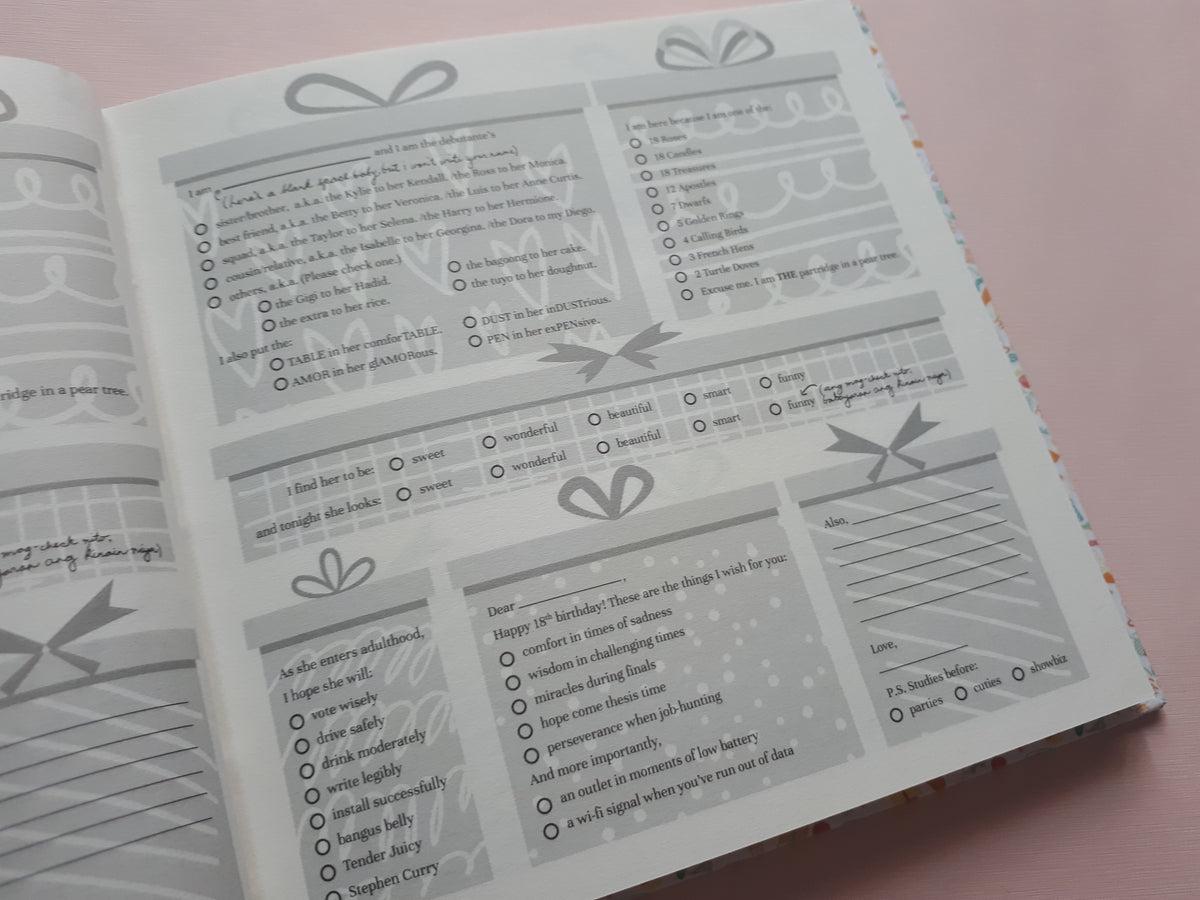 ridge in a pear tree.
mag-check nito,
ang kinain niya)
and I am the debutante's
I am
(here's a blank space baby, but I won't write your name)
sister/brother, a.k.a. the Kylie to her Kendall. /the Ross to her Monica.
best friend, a.k.a. the Betty to her Veronica. /the Luis to her Anne Curtis.
squad, a.k.a. the Taylor to her Selena. /the Harry to her Hermione.
cousin/relative, a.k.a. the Isabelle to her Georgina. /the Dora to my Diego.
others, a.k.a. (Please check one.)
the Gigi to her Hadid.
the bagoong to her cake.
the extra to her rice.
the tuyo to her doughnut.
I also put the:
TABLE in her comforTABLE.
DUST in her inDUSTrious.
AMOR in her glAMORous.
PEN in her exPENsive.
I am here because I am one of the:
18 Roses
18 Candles
18 Treasures
12 Apostles
7 Dwarfs
5 Golden Rings
4 Calling Birds
3 French Hens
2 Turtle Doves
Excuse me. I am THE partridge in a pear tree.
I find her to be: sweet wonderful beautiful smart funny
and tonight she looks: sweet wonderful beautiful smart funny
(ang mag-check nito,
babayaran ang kinain niya)
As she enters adulthood,
I hope she will:
vote wisely
drive safely
drink moderately
write legibly
install successfully
bangus belly
Tender Juicy
Stephen Curry
Dear ,
Happy 18th birthday! These are the things I wish for you:
comfort in times of sadness
wisdom in challenging times
miracles during finals
hope come thesis time
perseverance when job-hunting
And more importantly,
an outlet in moments of low battery
a wi-fi signal when you've run out of data
Also,
Love,
P.S. Studies before:
parties cuties showbiz